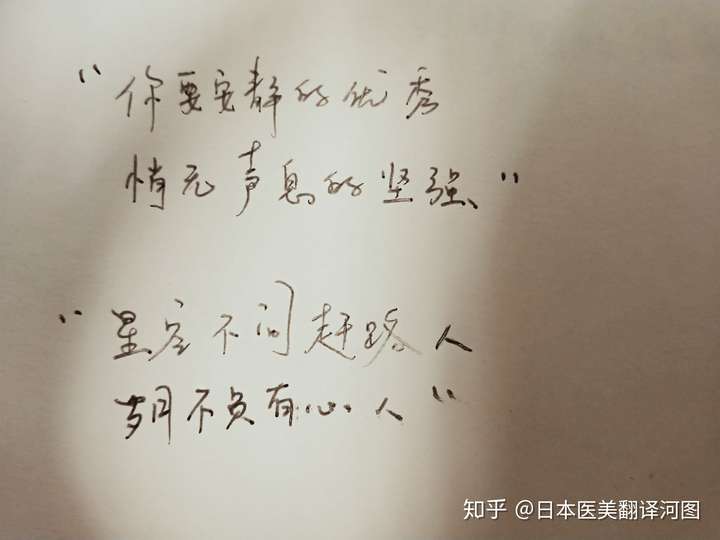 "你要安静的优秀
悄无声息的坚强"
"星空不问赶路人
岁月不负有心人"
知乎 @日本医美翻译河图